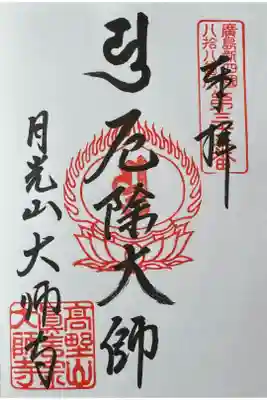 廣島新四國
八拾八ヶ所第三番
奉拝
厄除大師
月光山大師寺
高野山
大師寺